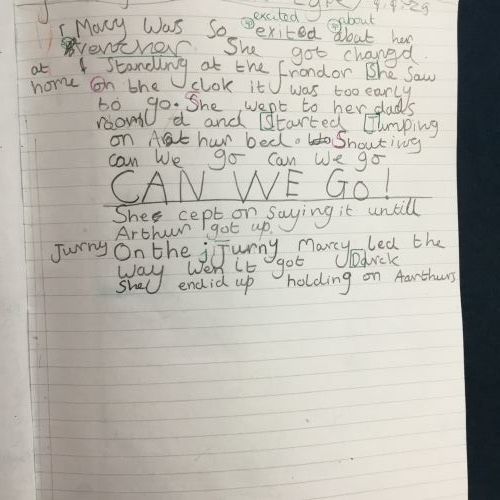 excited about
Marcy was so exited abat her
vencher. She got changd.
at Standing at the frondor She saw
home on the clok it was too early
to go. She went to her dads
room d and Started Jumping
on Aathur bed. Shouting
can we go can we go
CAN WE GO!
She cept on saying it untill
Arthur got up.
Jurny On the j Jurny Marcy led the
way wen it got Darck
She endid up holding on Aarthurs